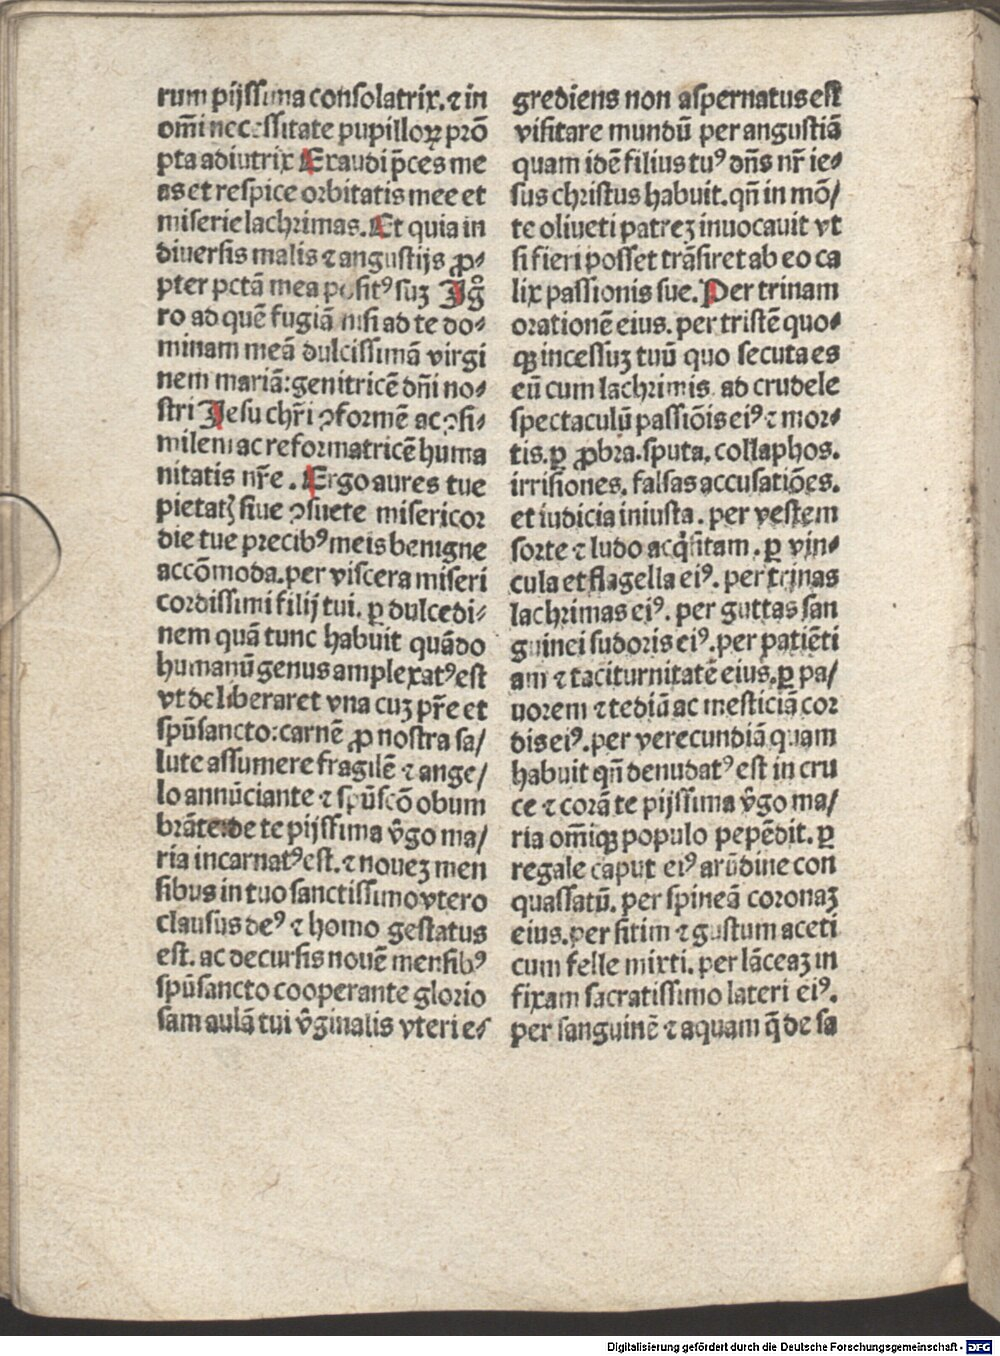 rum pijssima consolatrix. ⁊ in
om̄i necessitate pupilloꝝ prō
pta adiutrix Exaudi p̄ces me
as et respice orbitatis mee et
miserie lachrimas. Et quia in
diuersis malis ⁊ angustijs ꝓ⸗
pter pctā mea posit⁹ suꝫ Igͦ
ro ad quē fugiā nisi ad te do⸗
minam meā dulcissimā virgi
nem mariā: genitricē dn̄i no⸗
stri Jesu chr̄i ꝯformē ac ꝯsi⸗
milem ac reformatricē huma
nitatis nr̄e. Ergo aures tue
pietatꝭ siue ꝯsuete misericor
die tue precib⁹ meis benigne
accōmoda. per viscera miseri
cordissimi filij tui. ꝑ dulcedi⸗
nem quā tunc habuit quādo
humanū genus amplexat⁹ est
vt deliberaret vna cuꝫ pr̄e et
spūsancto: carnē ꝓ nostra sa/
lute assumere fragilē ⁊ ange/
lo annūciante ⁊ spūscō obum
brāte: de te pijssima v̄go ma/
ria incarnat⁹ est. ⁊ noueꝫ men
sibus in tuo sanctissimo vtero
clausus de⁹ ⁊ homo gestatus
est. ac decursis nouē mensib⁹
spūsancto cooperante glorio
sam aulā tui v̄ginalis vteri e⸗
grediens non aspernatus est
visitare mundū per angustiā
quam idē filius tu⁹ dn̄s nr̄ ie⸗
sus christus habuit. qn̄ in mō/
te oliueti patreꝫ inuocauit vt
si fieri posset trāsiret ab eo ca
lix passionis sue. Per trinam
orationē eius. per tristē quo⸗
qꝫ incessuꝫ tuū quo secuta es
eū cum lachrimis ad crudele
spectaculū passiōis ei⁹ ⁊ mor⸗
tis. ꝑ ꝓbra. sputa. collaphos.
irrisiones. falsas accusatiōes.
et iudicia iniusta. per vestem
sorte ⁊ ludo acq̄sitam. ꝑ vin⸗
cula et flagella ei⁹. per trinas
lachrimas ei⁹. per guttas san
guinei sudoris ei⁹. per patiēti
am ⁊ taciturnitatē eius. ꝑ pa/
uorem ⁊ tediā ac mesticiā cor
dis ei⁹. per verecundiā quam
habuit qn̄ denudat⁹ est in cru
ce ⁊ corā te pijssima v̄go ma/
ria om̄iqꝫ populo pepēdit. ꝑ
regale caput ei⁹ arūdine con
quassatū. per spineā coronaꝫ
eius. per sitim ⁊ gustum aceti
cum felle mixti. per lāceaꝫ in
fixam sacratissimo lateri ei⁹.
per sanguinē ⁊ aquam q̄ de sa
Digitalisierung gefördert durch die Deutsche Forschungsgemeinschaft - DFG